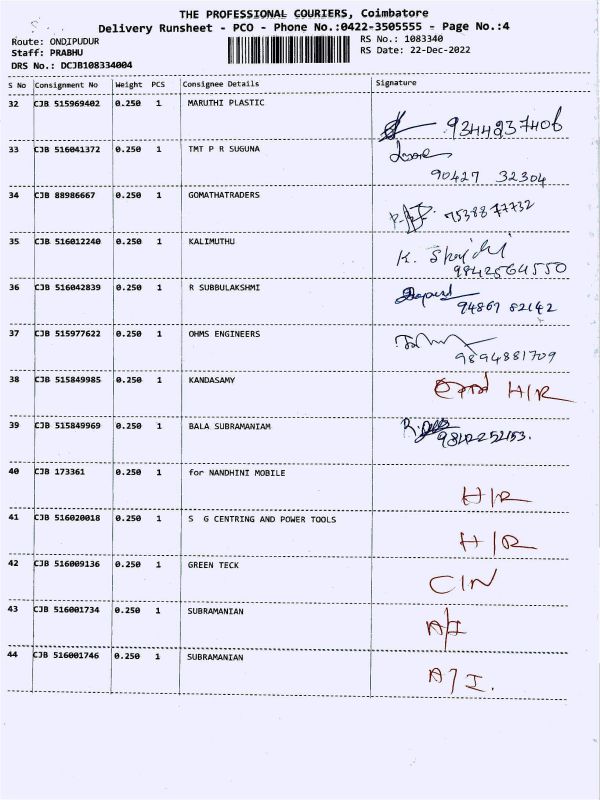 THE PROFESSIONAL COURIERS, Coimbatore
Delivery Runsheet - PCO - Phone No.:0422-3505555 - Page No.:4
Route: ONDIPUDUR
Staff: PRABHU
DRS No.: DCJB108334004
RS No.: 1083340
RS Date: 22-Dec-2022
S No Consignment No Weight PCS Consignee Details Signature
32 CJB 515969402 0.250 1 MARUTHI PLASTIC
9344237406
33 CJB 516041372 0.250 1 TMT P R SUGUNA
90427 32304
34 CJB 88986667 0.250 1 GOMATHATRADERS
75388 77732
35 CJB 516012240 0.250 1 KALIMUTHU
K.
9842564550
36 CJB 516042839 0.250 1 R SUBBULAKSHMI
94867 82142
37 CJB 515977622 0.250 1 OHMS ENGINEERS
9894881709
38 CJB 515849985 0.250 1 KANDASAMY
H/R
39 CJB 515849969 0.250 1 BALA SUBRAMANIAM
40 CJB 173361 0.250 1 for NANDHINI MOBILE
H/R
41 CJB 516020018 0.250 1 S G CENTRING AND POWER TOOLS
H/R
42 CJB 516009136 0.250 1 GREEN TECK
C/N
43 CJB 516001734 0.250 1 SUBRAMANIAN
A/I
44 CJB 516001746 0.250 1 SUBRAMANIAN
A/I.